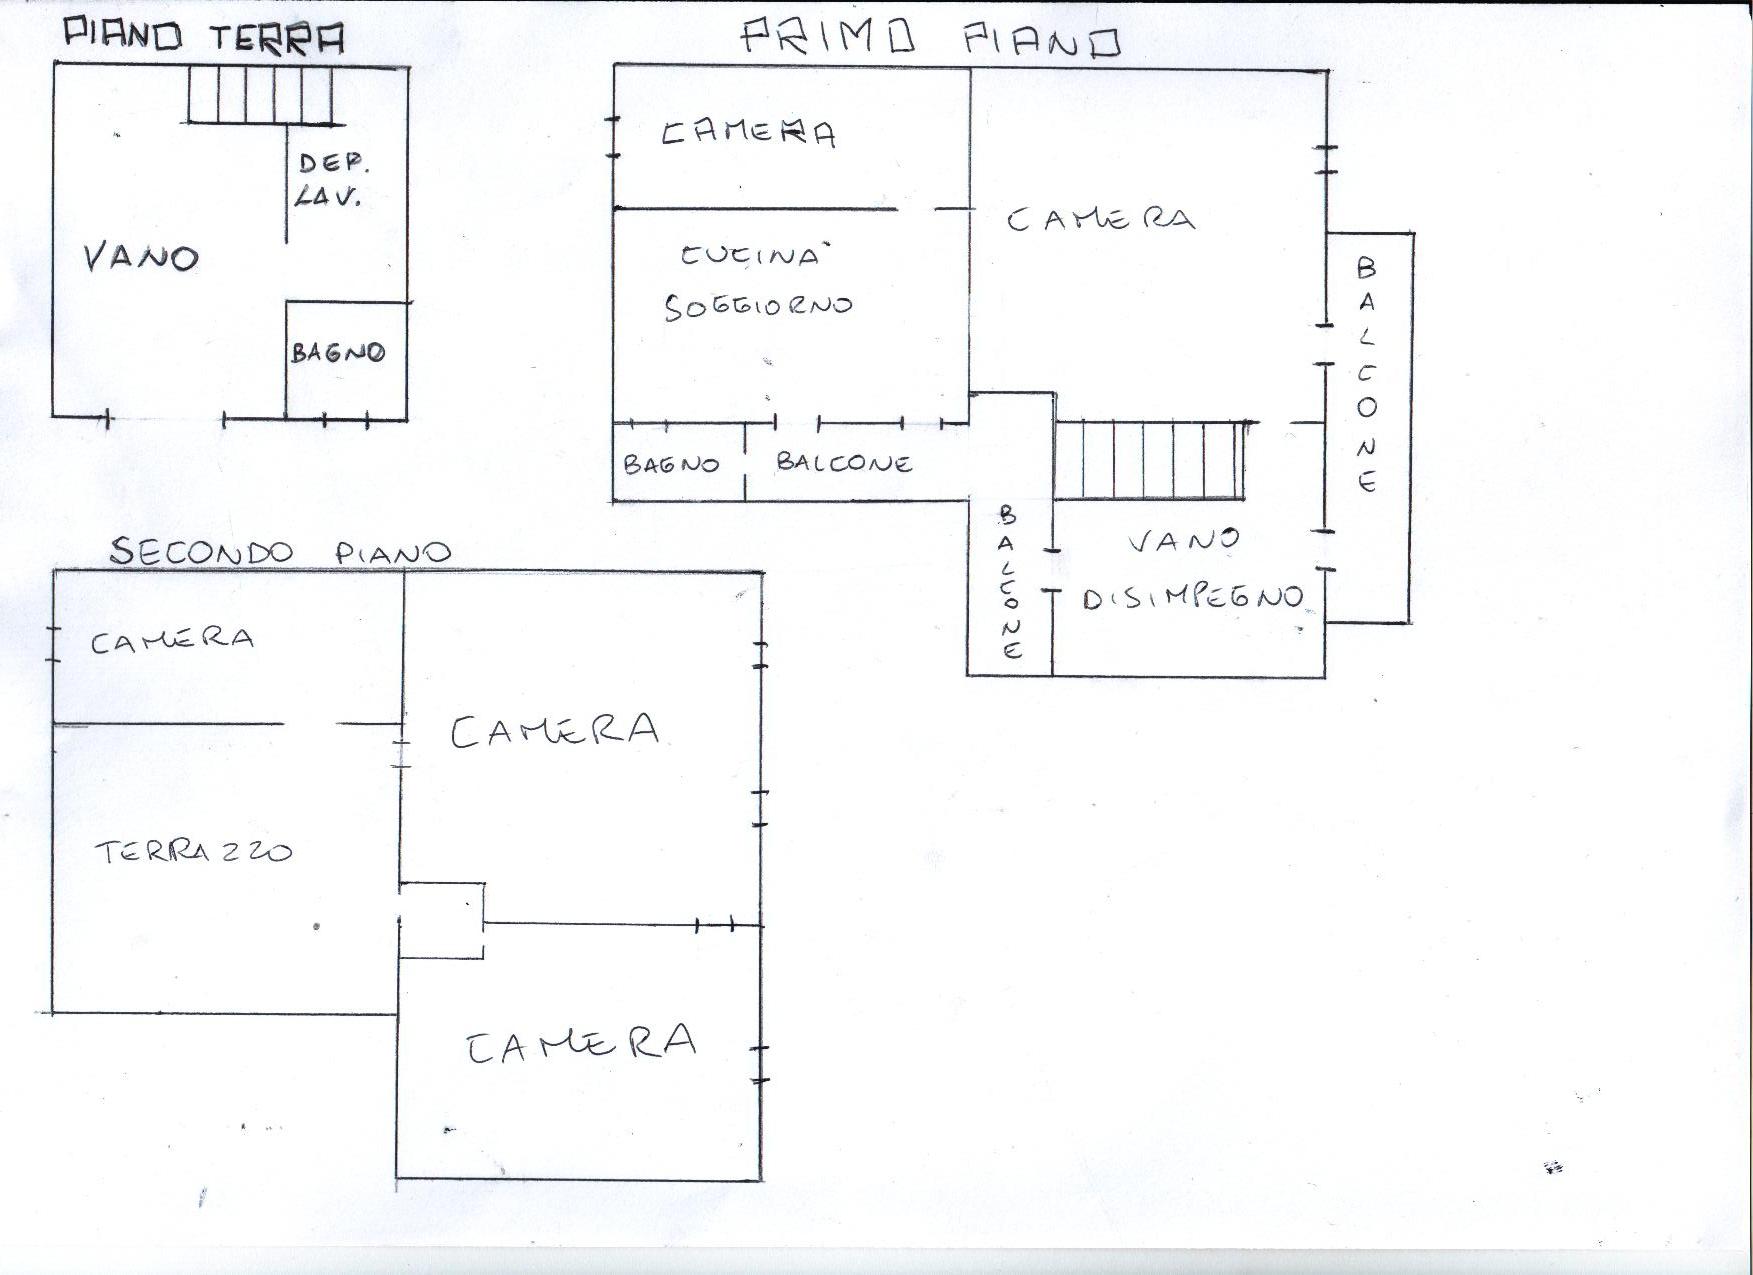 PIANO TERRA
DEP.
LAV.
VANO
BAGNO
PRIMO PIANO
CAMERA
CAMERA
CUCINA
SOGGIORNO
BALCONE
BAGNO
BALCONE
BALCONE
VANO
DISIMPEGNO
SECONDO PIANO
CAMERA
CAMERA
TERRAZZO
CAMERA